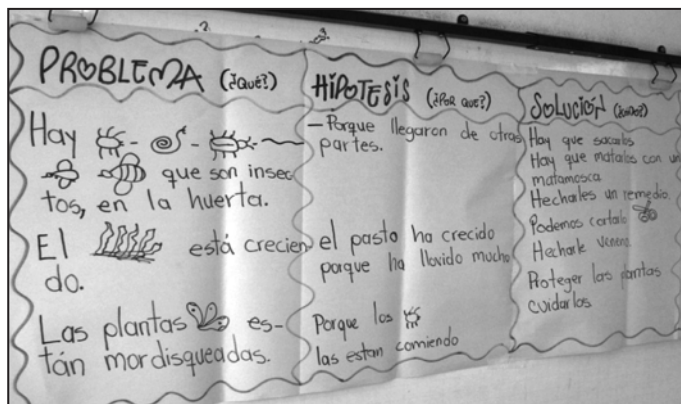 PROBLEMA (¿QUÉ?)
Hay
que son insec
tos, en la huerta.
El está crecien
do.
Las plantas es-
tán mordisqueadas.
HiPOTESiS (¿POR QUE?)
- Porque llegaron de otras
partes.
el pasto ha crecido
porque ha llovido mucho
Porque los
las estan comiendo
SOLUCIÓN
Hay que sacarlos
Hay que matarlos con un
matamosca
Hecharles un remedio.
Podemos cortarlo
Hecharle veneno
Proteger las plantas
cuidarlas